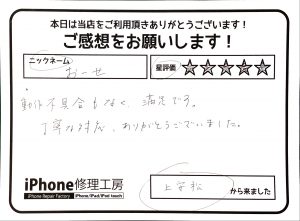 本日は当店をご利用頂きありがとうございます！
ご感想をお願いします！
ニックネーム
おーせ
星評価
☆☆☆☆☆
動作不具合もなく、満足です。
丁寧な対応、ありがとうございました。
iPhone修理工房
iPhone Repair Factory
iPhone/iPad/iPod touch
上安松
から来ました